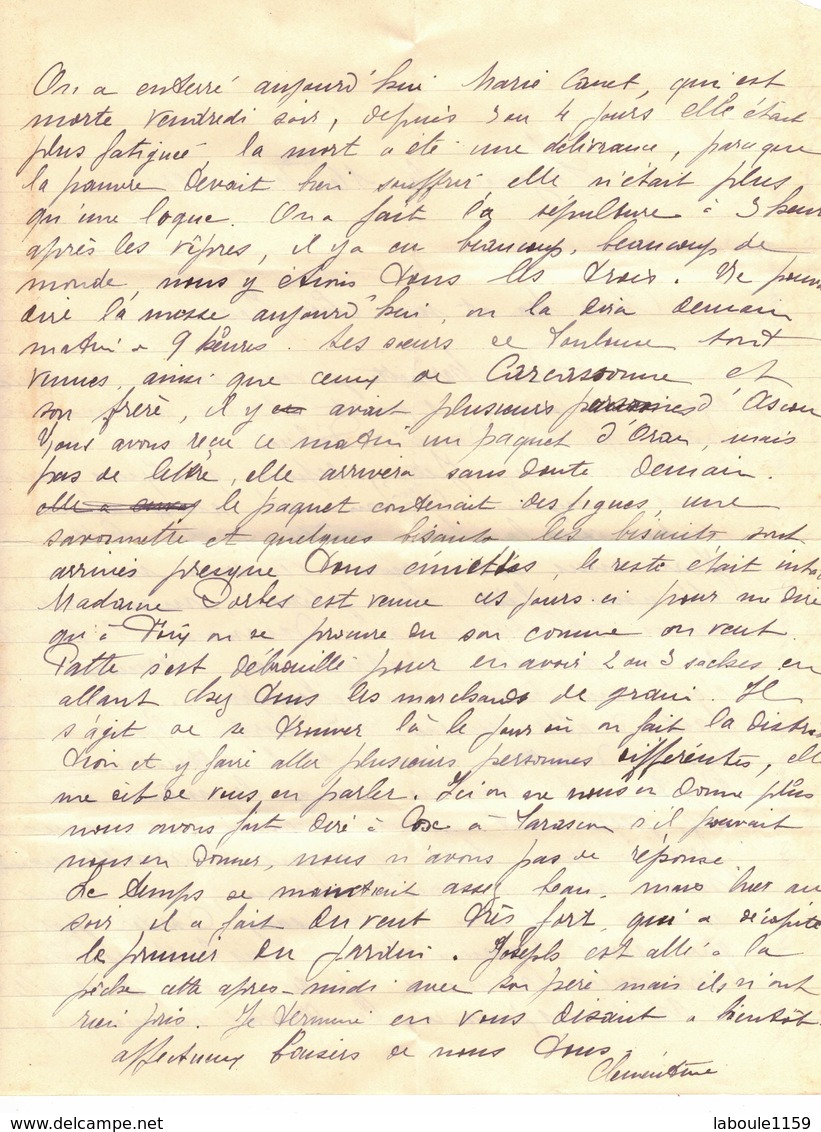 On a enterré aujourd'hui Marie Canet, qui est
morte vendredi soir, depuis 3 ou 4 jours elle était
plus fatiguée la mort a été une délivrance, parceque
la pauvre devait bien souffrir, elle n'était plus
qu'une loque. On a fait la sépulture à 3 heur
après les vêpres, il y a eu beaucoup, beaucoup de
monde, nous y étions tous les trois. Ne pouv
dire la messe aujourd'hui, on la dira demain
matin à 9 heures. Les sœurs de Toulouse sont
venues, ainsi que ceux de Carcassonne et
son frère, il y avait plusieurs personnes d'Ascou
Nous avons reçu ce matin un paquet d'Oran, mais
pas de lettre, elle arrivera sans doute demain.
le paquet contenait des figues, une
savonnette et quelques bisauits les bisauits sont
arrivés presque tous émiettés, le reste était inta
Madame Dorbes est venue ces jours-ci pour me dire
qu'à Foix on se procure du son comme on veut.
Patte s'est débrouillé pour en avoir 2 ou 3 sackes en
allant chez tous les marchands de grain. Il
s'agit de se trouver là le jour où on fait la distri
tion et y faire aller plusieurs personnes différentes, elle
me dit de vous en parler. Ici on ne nous en donne plus
nous avons fait dire à à Tarascon s'il pouvait
nous en donner, nous n'avons pas de réponse
Le temps se maintient assez beau, mais hier au
soir il a fait du vent très fort, qui a décapité
le prunier du jardin. Joseph est allé à la
pêche cette après-midi avec son père mais ils n'ont
rien pris. Je termine en vous disant à bientôt
affectueux baisers de nous tous.
Clémentine
laboule1159